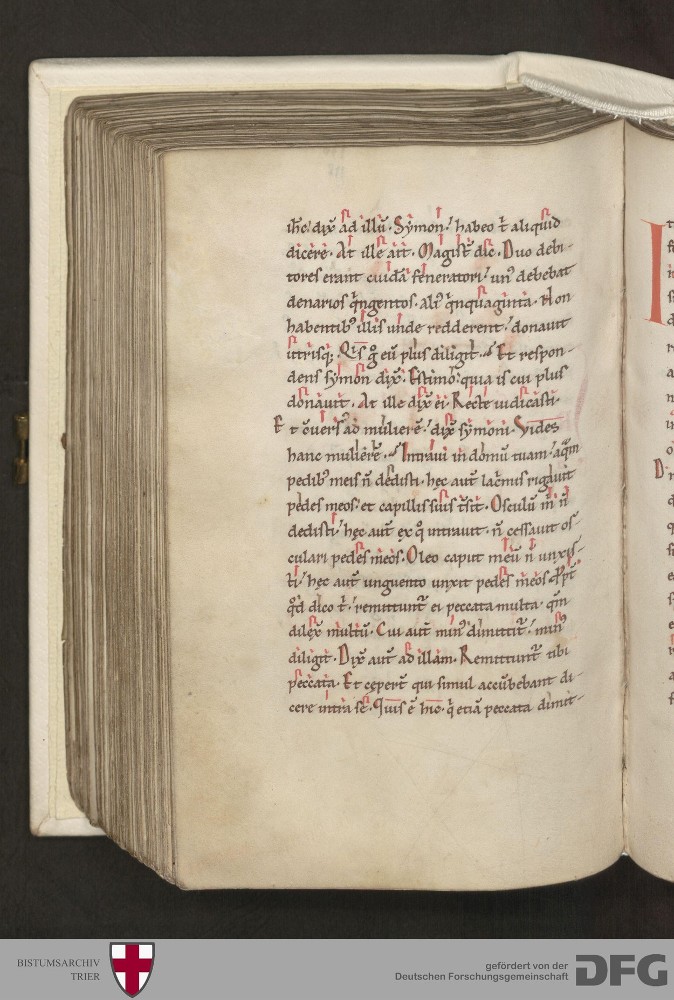 ihc̅ dix̅ ad illū. Symon, habeo t̄ aliquid
dicere. At ille ait. Magist̄ dic. Duo debi-
tores erant cuidā feneratori, un᷒ debebat
denarios qͥngentos. ali᷒ qͥnquaginta. Non
habentib᷒ illis unde redderent, donauit
utrisq;. Qͥs gͦ eū plus diligit. Et respon-
dens symon dix̅. Estimo quia is cui plus
donauit. At ille dix̅ ei. Recte iudicasti.
Et ꝯuers᷒ ad mulierē, dix̅ symoni. Vides
hanc mulierē. Intraui in domū tuam, aqͣm
pedib᷒ meis n̄ dedisti. hęc aut̄ lac̄mis rigauit
pedes meos, et capillis suis t̄sit. Osculū m̄ n̄
dedisti, hęc aut̄ ex qͦ intrauit. n̄ cessauit os-
culari pedes meos. Oleo caput meū n̄ unxis-
ti, hęc aut̄ unguento unxit pedes meos. ꝓpt̄
qd̄ dico t̄, remittunt̄ ei peccata multa. qm̄
dilex̄ multū. Cui aut̄ min᷒ dimittit̄, min᷒
diligit. Dix̅ aut̄ ad illam. Remittunt̄ tibi
peccata. Et ceper̄t qui simul accūbebant di-
cere intra se. Quis ē hic. qͥ etiā peccata dimit-
I
D
BISTUMSARCHIV
TRIER
gefördert von der
Deutschen Forschungsgemeinschaft
DFG